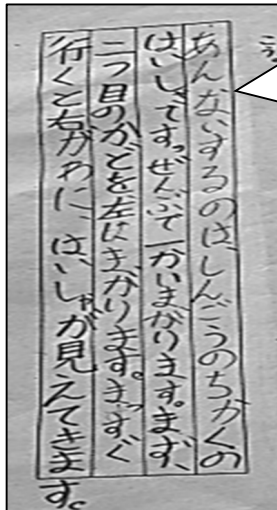 あんないするのは、しんごうのちかくの
はいしゃです。ぜんぶで一かいまがります。まず、
二つ目のかどを左にまがります。まっすぐ
行くと右がわに、はいしゃが見えてきます。